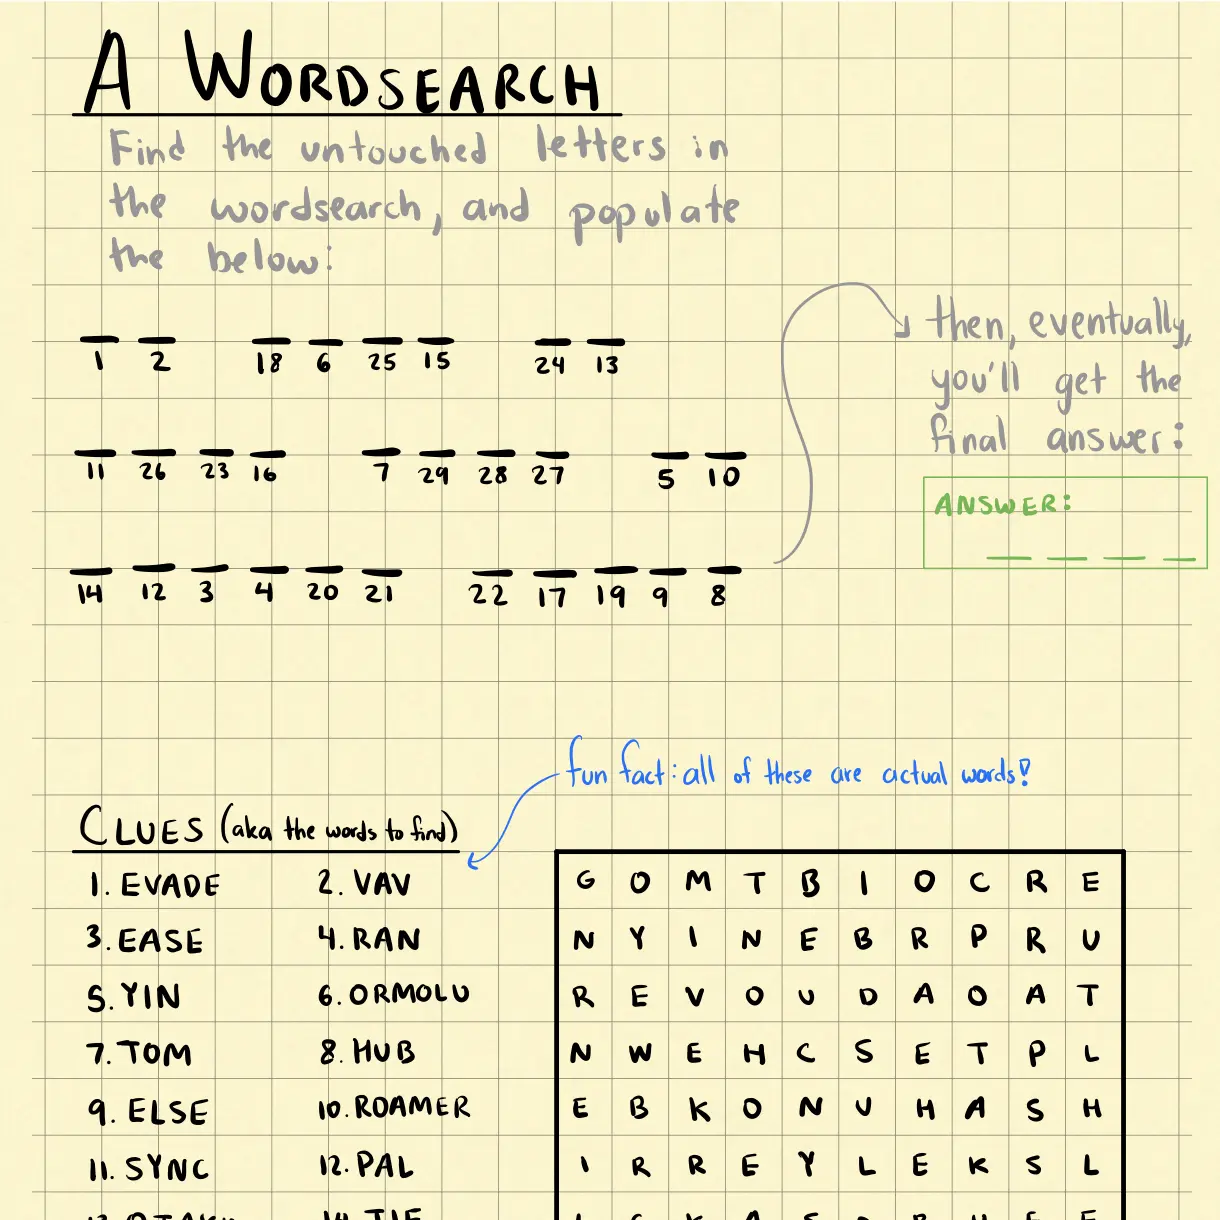 A WORDSEARCH
Find the untouched letters in
the wordsearch, and populate
the below:
1 2 18 6 25 15 24 13
11 26 23 16 7 29 28 27 5 10
14 12 3 4 20 21 22 17 19 9 8
then, eventually,
you'll get the
final answer:
ANSWER:
fun fact: all of these are actual words!
CLUES (aka the words to find)
1. EVADE
2. VAV
3. EASE
4. RAN
5. YIN
6. ORMOLU
7. TOM
8. HUB
9. ELSE
10. ROAMER
11. SYNC
12. PAL
G O M T B I O C R E
N Y I N E B R P R U
R E V O U D A O A T
N W E H C S E T P L
E B K O N U H A S H
I R R E Y L E K S L